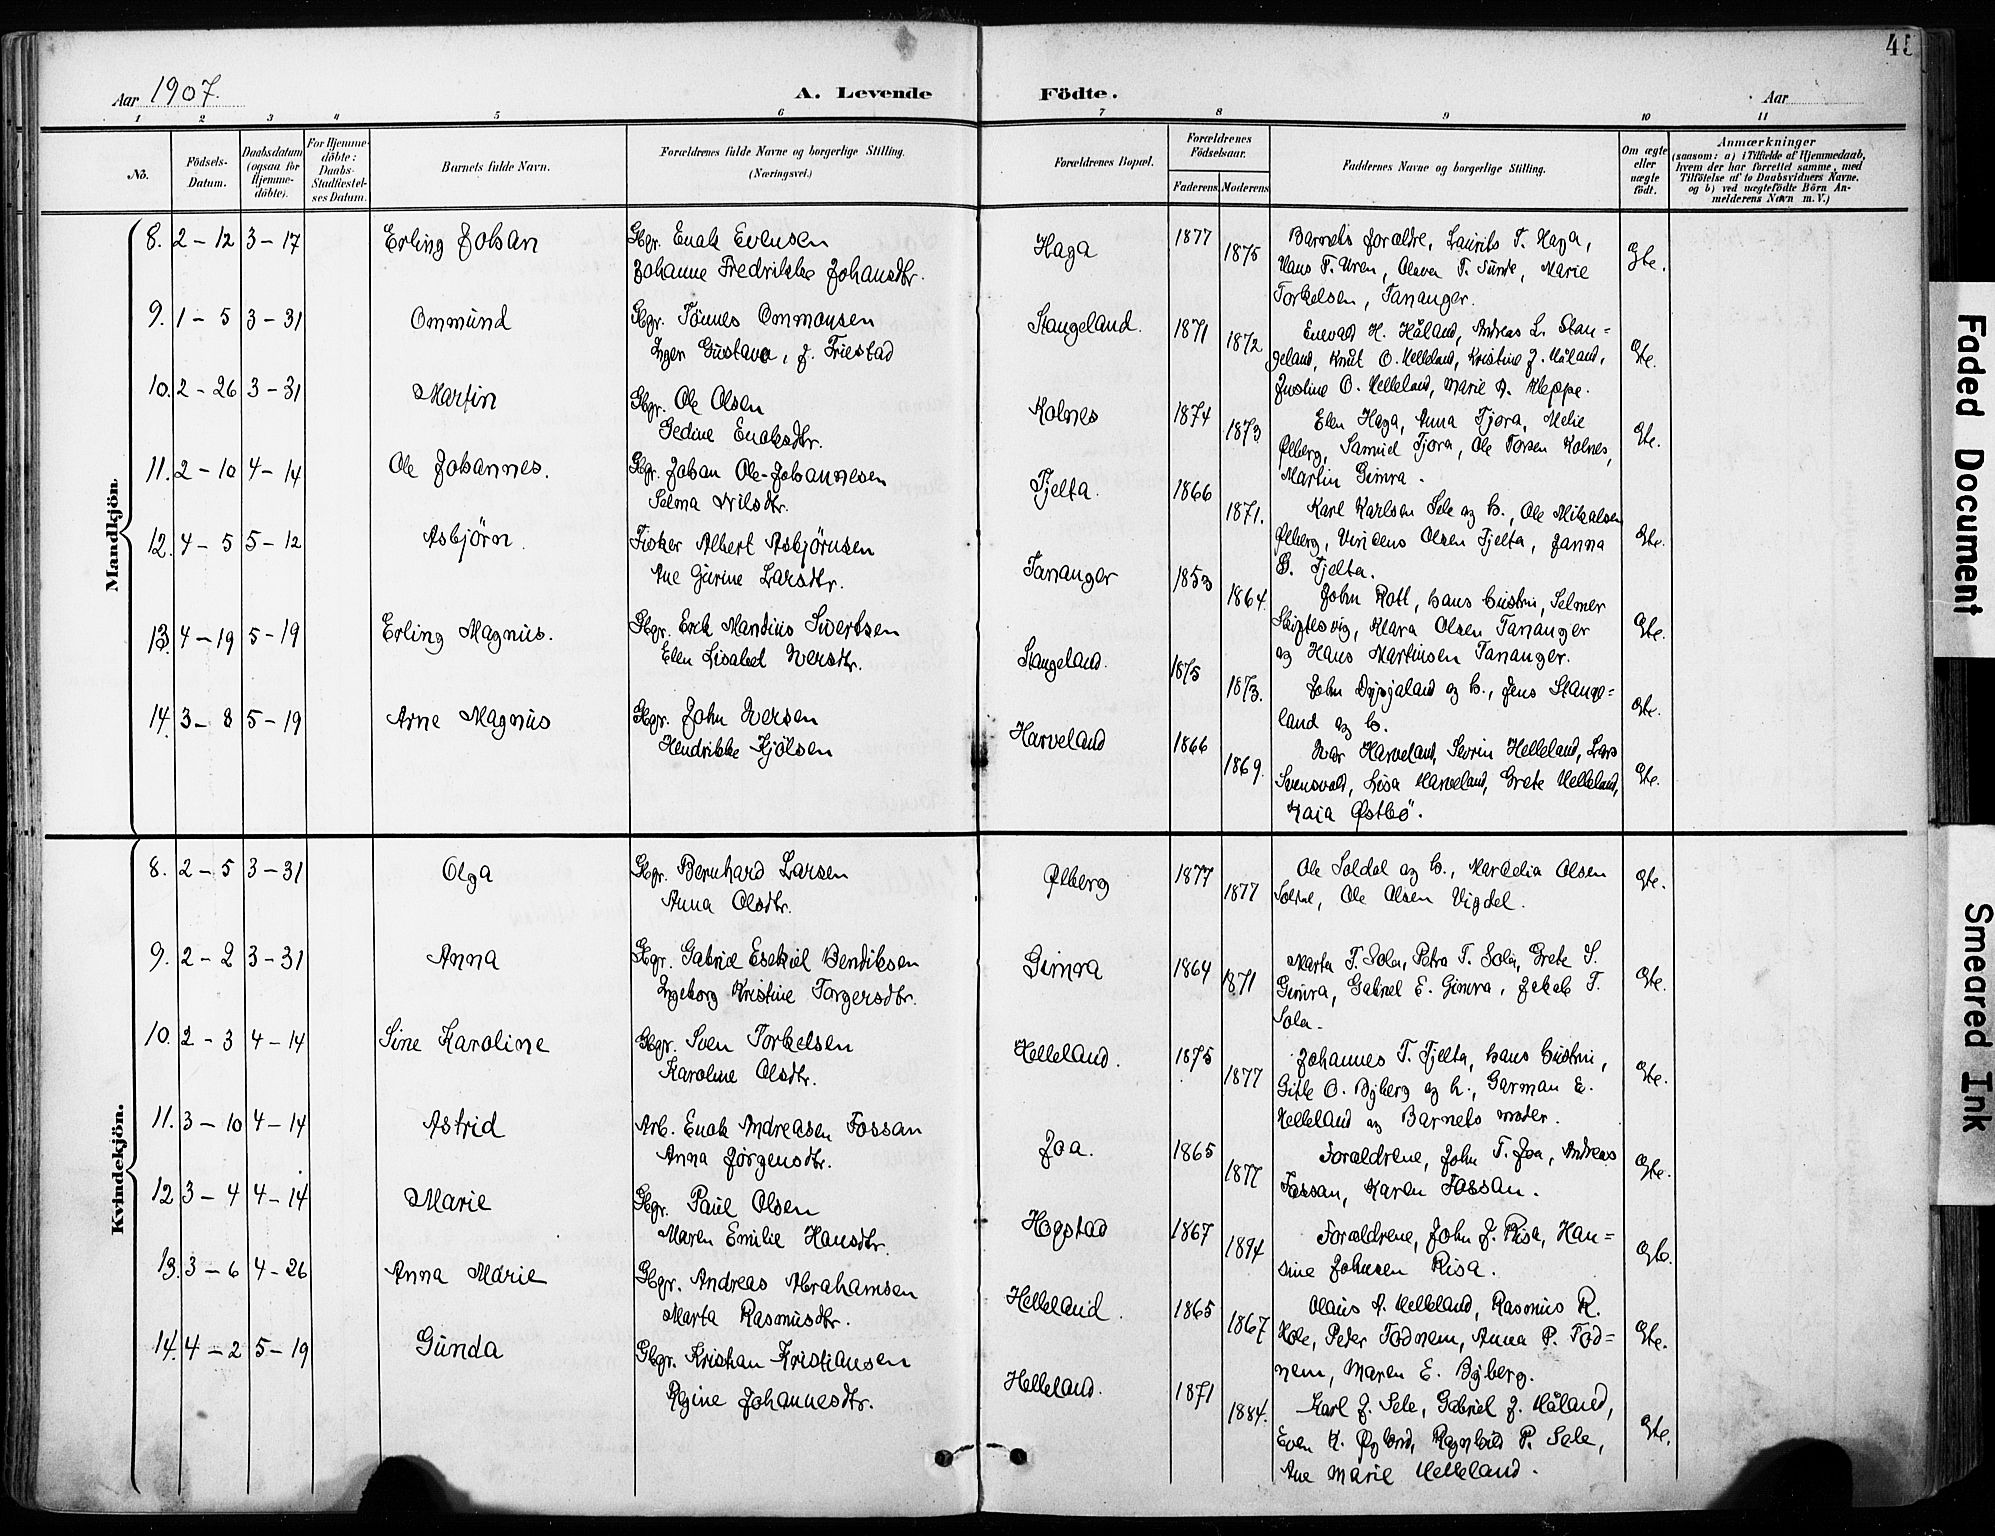 45
Aar 1907.
A. Levende Födte.
Aar
1 2 3 4 5 6 7 8 9 10 11
No.
Födsels-Datum.
Daabsdatum (ogsaa for Hjemme-döbte).
For Hjemme-döbte: Daabs-Stadfæstel-ses Datum.
Barnets fulde Navn.
Forældrenes fulde Navne og borgerlige Stilling.
(Næringsvei.)
Forældrenes Bopæl.
Forældrenes Födselsaar.
Faderens. Moderens.
Faddernes Navne og borgerlige Stilling.
Om ægte eller uægte født.
Anmærkninger
(saasom: a) i Tilfælde af Hjemmedaab, hvem der har forrettet samme, med Tilföielse af to Daabsvidners Navne. og b) ved uægtefödte Börn An-melderens Navn m. V.)
Mandkjön
8. 2-12 3-17 Erling Johan Gbgr. Enok Evensen Haga 1877 1875 Barnets forældre, Laurits T. Haga, Gte.
Johanne Fredrikke Johansdtr. Hans T. Uren, Olava T. Sunde, Marie
Torkelsen, Tananger.
9. 1-5 3-31 Ommund Gbgr. Tönnes Ommonsen Stangeland. 1871 1872 Enevald H. Håland, Andreas L. Stan= Gte.
Inger Gustava, J. Friestad geland, Knut O. Helleland, Kristine J. Håland,
Justine O. Helleland, Marie A. Kleppe.
10. 2-26 3-31 Martin Gbgr. Ole Olsen Kolnes 1874 1873 Elen Haga, Anna Tjora, Melie Gte.
Gedine Enoksdtr. Ølberg, Samuel Tjora, Ole Torsen Kolnes,
Martin Gimra.
11. 2-10 4-14 Ole Johannes. Gbgr. Johan Ole-Johannesen Tjelta. 1866 1871. Karl Karlsen Sele og h., Ole Mikalsen Gte.
Selma Nilsdtr. Ølberg, Vincens Olsen Tjelta, Janna
G. Tjelta.
12. 4-5 5-12 Asbjörn. Fisker Albert Asbjörnsen Tananger 1853 1864. John Rott, hans hustru, Selmer Gte.
Ane Gurine Larsdtr. Skiftesvig, Klara Olsen Tananger
og Hans Martinsen Tananger.
13. 4-19 5-19 Erling Magnus. Gbgr. Erik Mandius Sivertsen Stangeland. 1875 1873. John Dysjaland og h., Jens Stange= Gte.
Elen Lisabet Iversdtr. land og h.
14. 3-8 5-19 Arne Magnus Gbgr. John Iversen Harveland 1866 1869. Ivar Harveland, Serrin Helleland, Lars Gte.
Hendrikke Kjölsen Svensvold, Lisa Harveland, Grete Helleland,
Kaia Østbö.
Kvindekjön.
8. 2-5 3-31 Olga Gbgr. Bernhard Larsen Ølberg 1877 1877 Ole Soldal og h., Olsen Gte.
Anna Olsdtr. Ole Olsen Vigdel.
9. 2-2 3-31 Anna Gbgr. Gabriel Esekiel Bendiksen Gimra 1864 1871 Marta T. Sola, Petra T. Sola, Grete S. Gte.
Ingeborg Kristine Torgersdtr. Gimra, Gabriel E. Gimra, Jakob T.
Sola.
10. 2-3 4-14 Sine Karoline Gbgr. Sven Torkelsen Helleland. 1875 1877 Johannes T. Tjelta, hans hustru, Gte.
Karoline Olsdtr. Gitle O. Byberg og h., Garman E.
Helleland og Barnets moder.
11. 3-10 4-14 Astrid Arb. Enok Andreasen Fossan Joa. 1865 1877 Forældrene, John T. Joa, Andreas Gte.
Anna Jörgensdtr. Fossan, Karen Fossan.
12 3-4 4-14 Marie Gbgr. Paul Olsen Hogstad 1867 1874 Forældrene, John J. Risa, Han= Gte.
Maren Emilie Hansdtr. sine Johnsen Risa.
13. 3-6 4-26 Anna Marie Gbgr. Andreas Abrahamsen Helleland. 1865 1867 Olaus A. Helleland, Rasmus R. Gte.
Marta Rasmusdtr. Hole, Peder Todnem, Anna P. Tod=
nem, Maren E. Byberg.
14. 4-2 5-19 Gunda Gbgr. Kristian Kristiansen Helleland. 1871 1884. Karl J. Sele, Gabriel J. Håland, Gte.
Regine Johannesdtr. Even K. Ragnhild P. Sele,
Ane Marie Helleland.
Faded Document
Smeared Ink